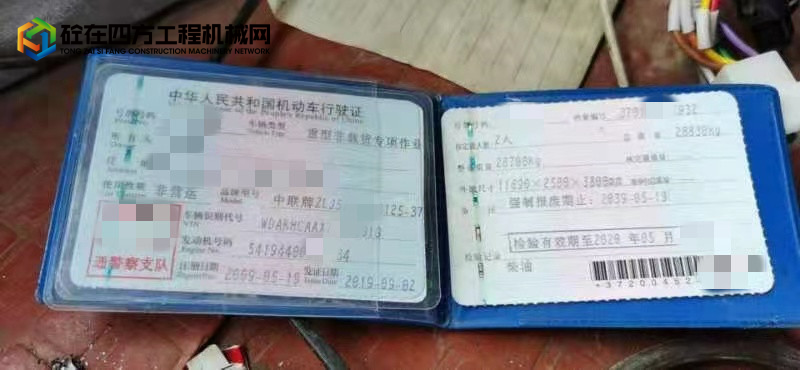 砼在四方工程机械网
TONG ZAI SI FANG CONSTRUCTION MACHINERY NETWORK
中华人民共和国机动车行驶证
of the People's Republic of China
号牌号码
车辆类型
Vehicle Type
重型非载货专项作业
所有人
Owner
住
使用性质
非营运
品牌型号
Model
中联牌ZLJ5
125-37
车辆识别代号
VIN
WDAKHCAAX
发动机号码
Engine No.
54194400
64
注册日期
2009-05-19
发证日期
Issue Date
2019-09-02
通警察支队
号牌号码
档案编号
370
932
2人
总质量
28830kg
整备质量
28700kg
核定载质量
外廓尺寸
11690×2500×3800mm
备注
强制报废期止:2039-05-19
检验有效期至2020年05月
检验记录
柴油
+37200452